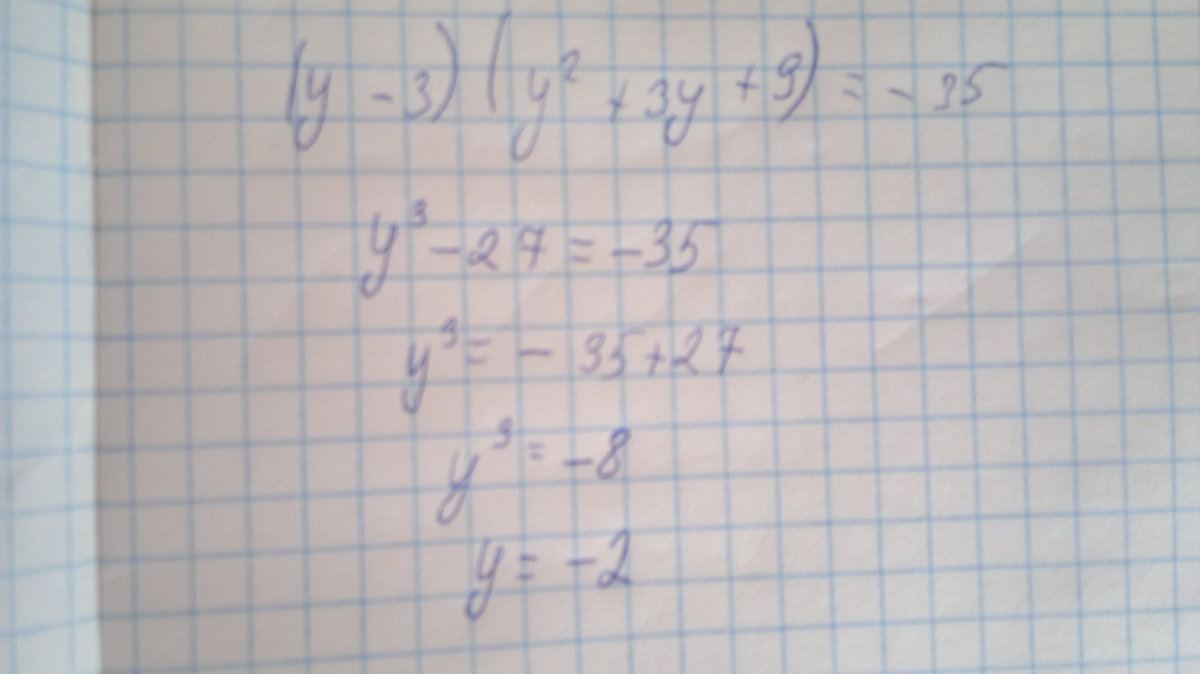 (y - 3) (y² + 3y + 9) = - 35
y³ - 27 = -35
y³ = - 35 + 27
y³ = -8
y = -2